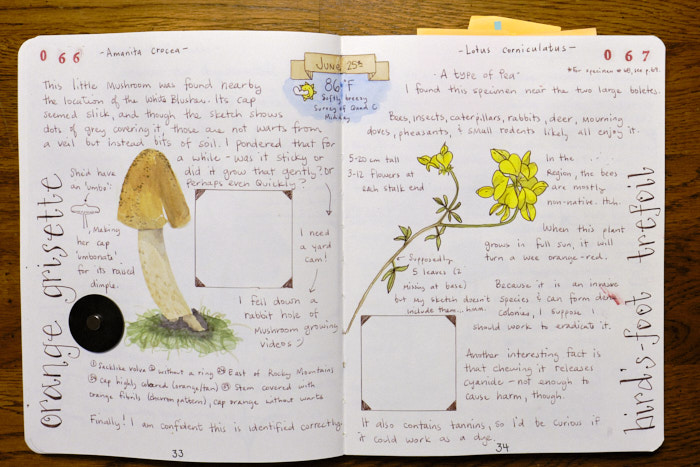 066
-Amanita crocea-
This little Mushroom was found nearby
the location of the White Blusher. Its cap
seemed slick, and though the sketch shows
dots of grey covering it, those are not warts from
a veil but instead bits of soil. I pondered that for
a while - was it sticky or
did it grow that gently? or
Perhaps even Quickly?
She'd have
an "umbo":
Making
her cap
"umbonate"
for its raised
dimple.
orange grisette
I need
a yard
cam!
I fell down a
rabbit hole of
Mushroom growing
videos :)
Sacklike volva without a ring East of Rocky Mountains
Cap highly colored (orange/tan) Stem covered with
orange fibrils (chevron pattern), cap orange without warts
Finally! I am confident this is identified correctly.
33
June 25th
86°F
Softly breezy
Survey of Quad C
Midday
-Lotus corniculatus-
067
-A type of Pea-
*For specimen # 48, see p. 69.
I found this specimen near the two large boletes.
Bees, insects, caterpillars, rabbits, deer, mourning
doves, pheasants, & small rodents likely all enjoy it.
5-20 cm tall
3-12 flowers at
each stalk end
In the
Region, the bees
are mostly
non-native. Huh.
When this plant
grows in full sun, it will
turn a wee orange-red.
Supposedly
5 leaves (2
Missing at base)
but my sketch doesn't
include them... hmm.
Because it is an invasive
species & can form dense
Colonies, I suppose I
should work to eradicate it.
Another interesting fact is
that chewing it releases
cyanide - not enough to
cause harm, though.
It also contains tannins, so I'd be curious if
it could work as a dye.
bird's-foot trefoil
34